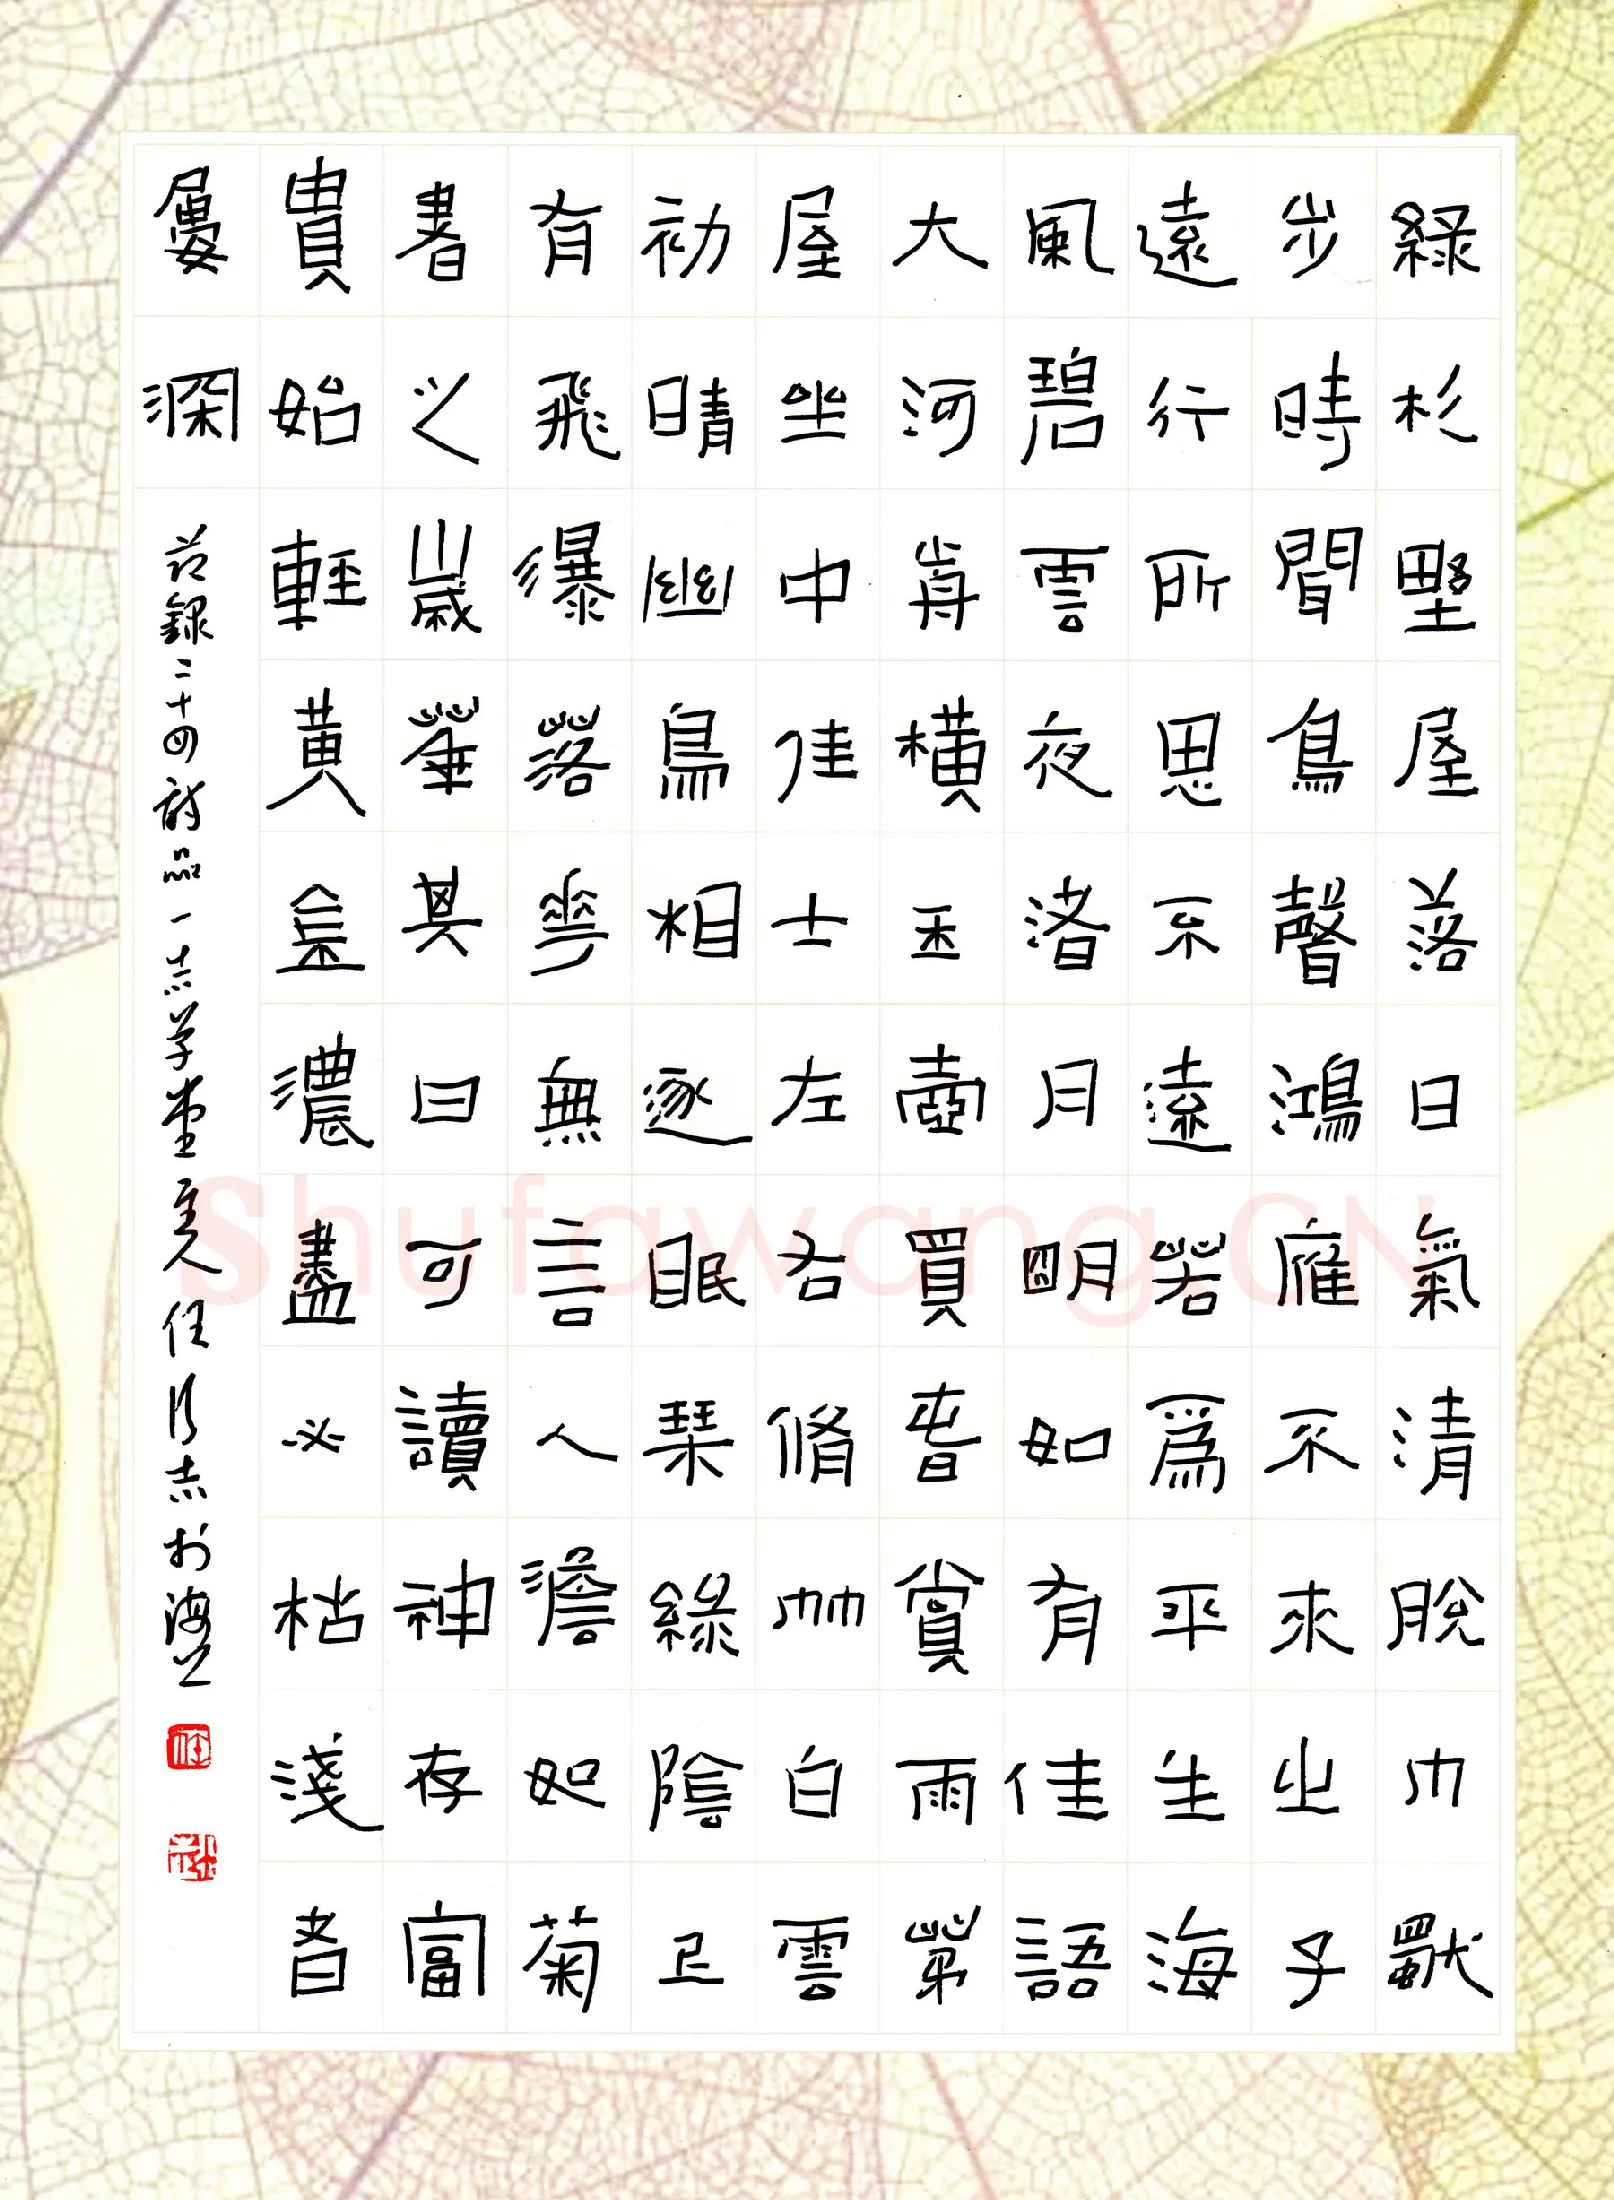 綠杉野屋落日氣清脫巾獨
步時聞鳥聲鴻雁不來之子
遠行所思不遠若爲平生海
風碧雲夜渚月明如有佳語
大河前橫玉壺買春賞雨茅
屋坐中佳士左右脩竹白雲
初晴幽鳥相逐眠琴綠陰上
有飛瀑落花無言人澹如菊
書之歲華其曰可讀神存富
貴始輕黃金濃盡必枯淺者
屢深
節錄二十四詩品一志学堂主人任志於海上
Shufawang.CN